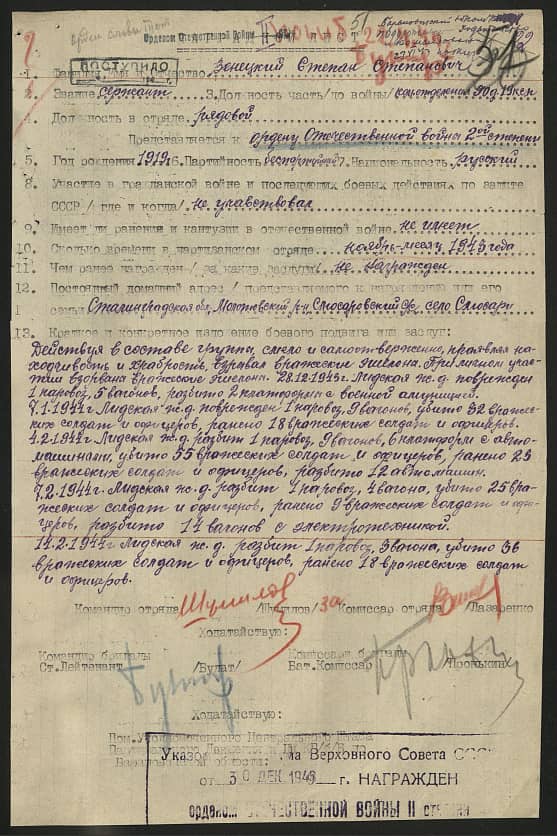 Орден славы III ст
51
Орденом Отечественной Войны II ст
ЛИСТ
34
ПОСТУПИЛО
1. Фамилия, имя и отчество Зенецкий Степан Степанович
2. Звание сержант 3. Должность часть/до войны/
4. Должность в отряде рядовой
Представляется к ордену Отечественной войны 2ой степени
5. Год рождения 1919г 6. Партийность беспартийный 7. Национальность русский
8. Участие в гражданской войне и последующих боевых действиях по защите
СССР /где и когда/ не участвовал
9. Имеет ли ранения и контузии в отечественной войне не имеет
10. Сколько времени в партизанском отряде ноябрь-месяц 1943 года
11. Чем ранее награжден /за какие заслуги/ не награжден
12. Постоянный домашний адрес /представляемого к награждению или его
семьи Сталинградская обл. Молотовский р-н с/с, село
13. Краткое и конкретное изложение боевого подвига или заслуг:
Действуя в составе группы, смело и самоотверженно, проявляя на-
ходчивость и храбрость, взрывал вражеские эшелоны. При личном учас-
тии взорваны вражеские эшелоны. 28.12.1943г. Лидская ж.д. поврежден
1 паровоз, 5 вагонов, разбито 2 платформы с военной амуницией.
7.1.1944г Лидская ж.д. поврежден 1 паровоз, 9 вагонов, убито 32 вражес-
ких солдат и офицеров, ранено 18 вражеских солдат и офицеров.
4.2.1944г Лидская ж.д. разбит 1 паровоз, 9 вагонов, 6 платформ с авто-
машинами, убито 55 вражеских солдат и офицеров, ранено 23
вражеских солдат и офицеров, разбито 12 автомашин.
7.2.1944г. Лидская ж.д. разбит 1 паровоз, 4 вагона, убито 25 вра-
жеских солдат и офицеров, ранено 9 вражеских солдат и офи-
церов, разбито 14 вагонов с электротехникой.
14.2.1944г Лидская ж.д. разбит 1 паровоз, 3 вагона, убито 36
вражеских солдат и офицеров, ранено 18 вражеских солдат
и офицеров.
Командир отряда Шумилов /Шумилов/ за Комиссар отряда /Лазаренко
Ходатайствую:
Командир бригады Комиссар бригады
Ст.Лейтенант /Булат/ Бат.Комиссар /Пронькин
Ходатайствую:
Указом Президиума Верховного Совета СССР
от 30 ДЕК 1948 г. НАГРАЖДЕН
орденом ОТЕЧЕСТВЕННОЙ ВОЙНЫ II степени